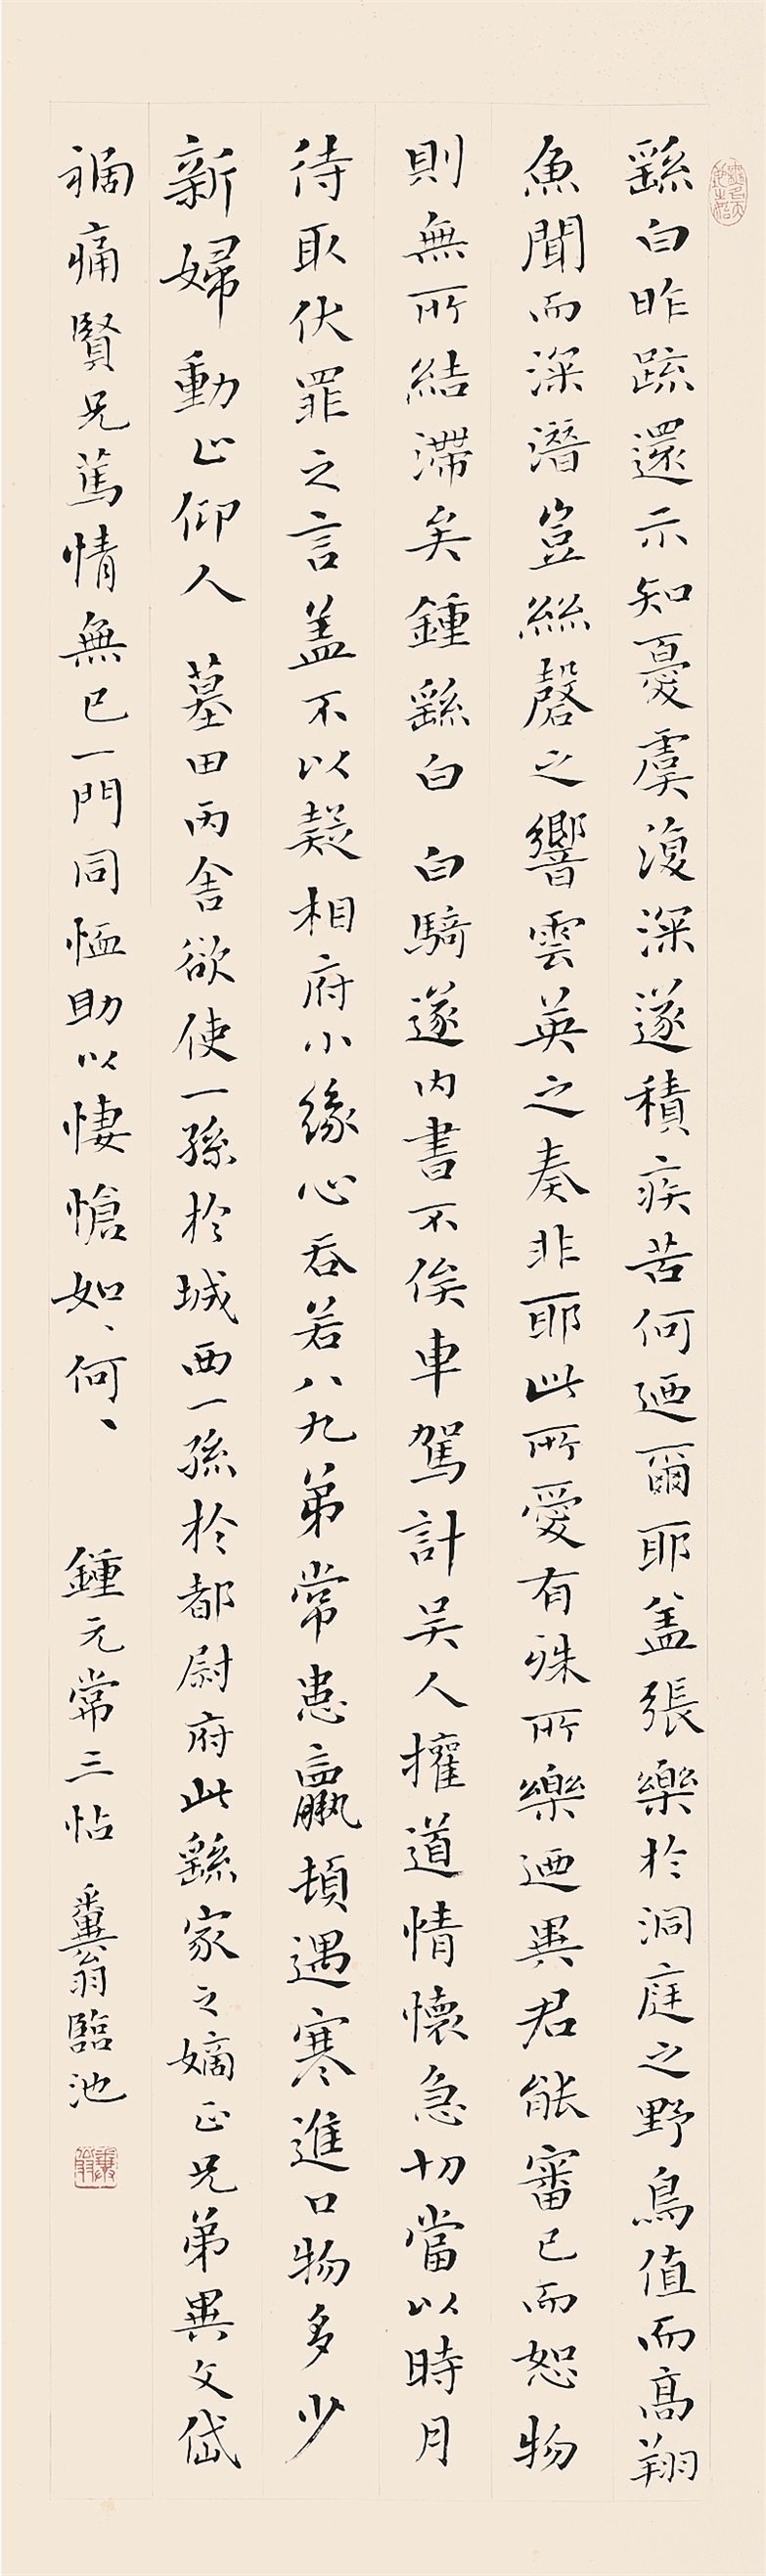 繇白昨疏還示知憂虞復深遂積疾苦何迺爾耶蓋張樂於洞庭之野鳥值而高翔
魚聞而深潛豈絲磬之響雲英之奏非耶此所愛有殊所樂迺異君能審己而恕物
則無所結滯矣鍾繇白 白騎遂內書不俟車駕計吳人擁道情懷急切當以時月
待取伏罪之言蓋不以疑相府小緣心吞若八九弟常患羸頓遇寒進口物多少
新婦動止仰人 墓田丙舍欲使一孫於城西一孫於都尉府此繇家之嫡正兄弟異文岱
禍痛賢兄篤情無已一門同恤助以悽愴如、何、 鍾元常三帖 糞翁臨池
糞翁